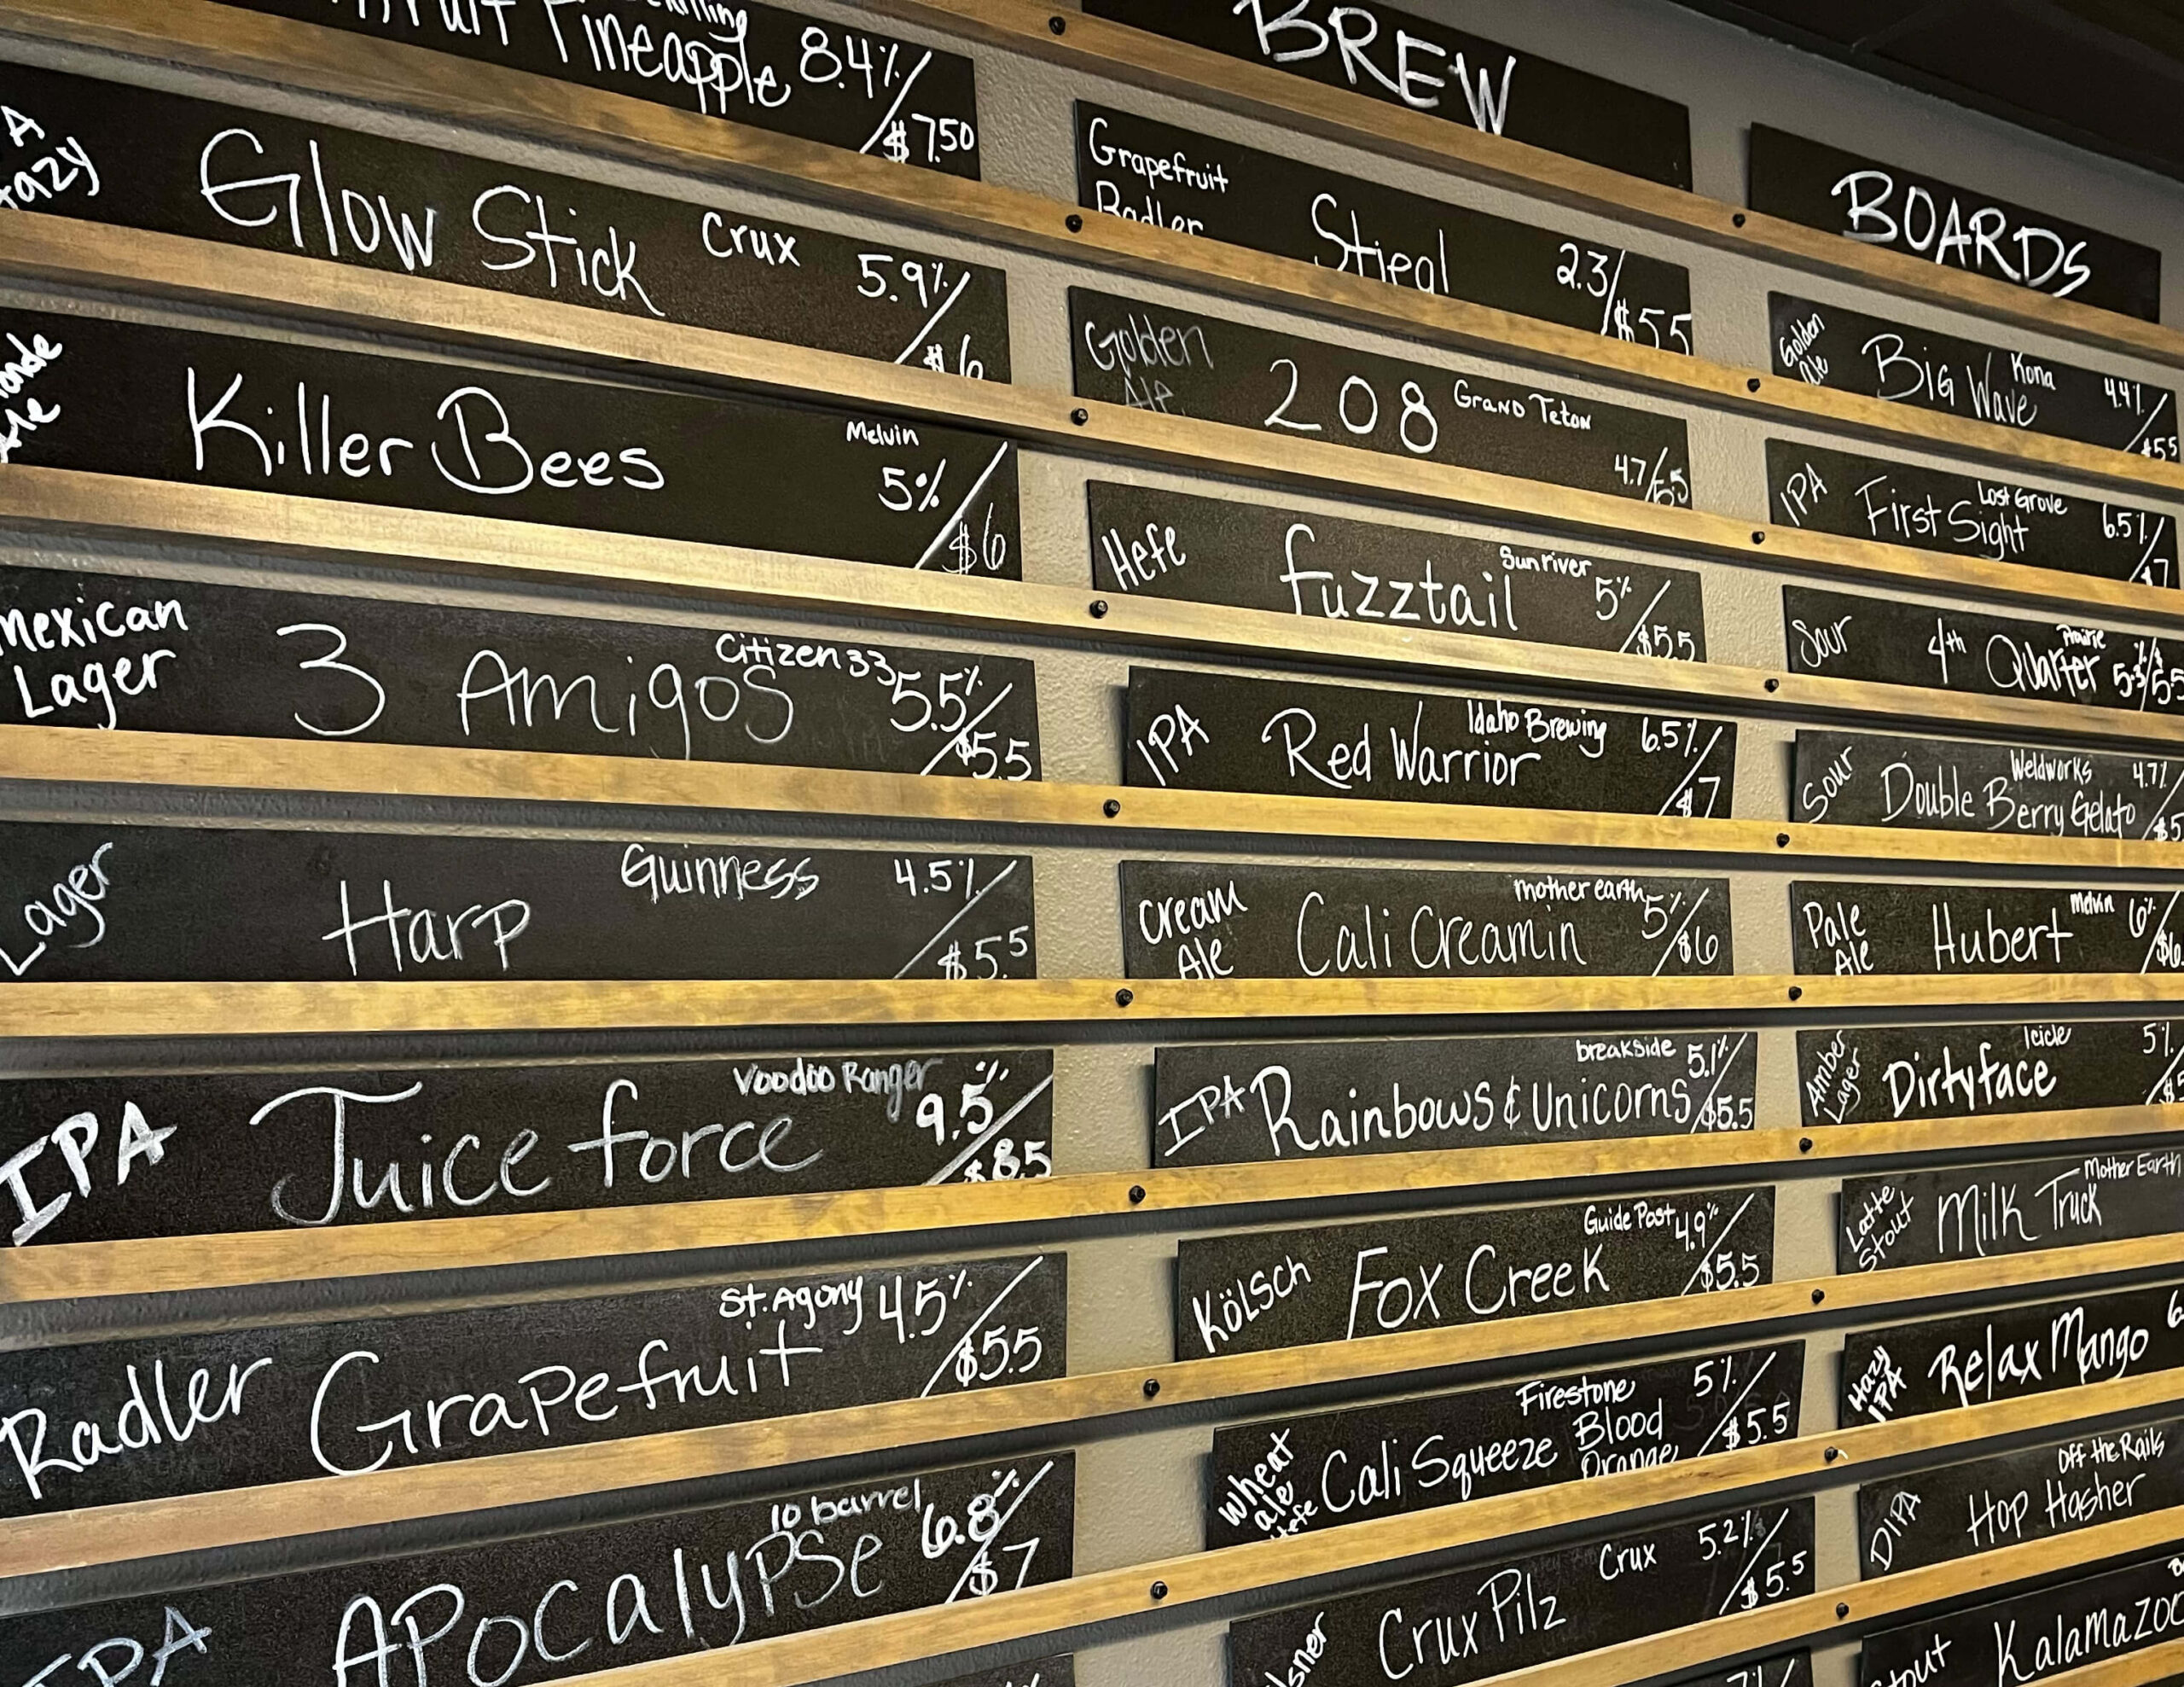 Pineapple 8.4%/$7.50
Glow Stick Crux 5.9%/$6
Killer Bees Melvin 5%/$6
Mexican Lager 3 Amigos Citizen 33 5.5%/$5.5
Lager Harp Guinness 4.5%/$5.5
IPA Juice force Voodoo Ranger 9.5%/$8.5
Radler Grapefruit St. Agony 4.5%/$5.5
IPA Apocalypse 10 barrel 6.8%/$7
BREW
Grapefruit Radler Stiegl 2.3/$5.5
Golden Ale 208 Grand Teton 4.7/5.5
Hefe fuzztail Sunriver 5%/$5.5
IPA Red Warrior Idaho Brewing 6.5%/$7
Cream Ale Cali Creamin mother earth 5%/$6
IPA Rainbows & Unicorns breakside 5.1%/$5.5
Kölsch Fox Creek Guide Post 4.9%/$5.5
Wheat ale Hefe Cali Squeeze Firestone Blood Orange 5%/$5.5
Crux Pilz Crux 5.2%/$5.5
BOARDS
Golden Ale Big Wave Kona 4.4%/$5.5
IPA First Sight Lost Grove 6.5%/$7
Sour 4th Quarter Prairie 5.3%/$5.5
Sour Double Berry Gelato Weldworks 4.7%/$5
Pale Ale Hubert Melvin 6%/$6
Amber Lager Dirtyface Icicle 5%/$5
Latte Stout Milk Truck Mother Earth
Hazy IPA Relax Mango
DIPA Hop Hasher Off the Rails
Stout Kalamazoo